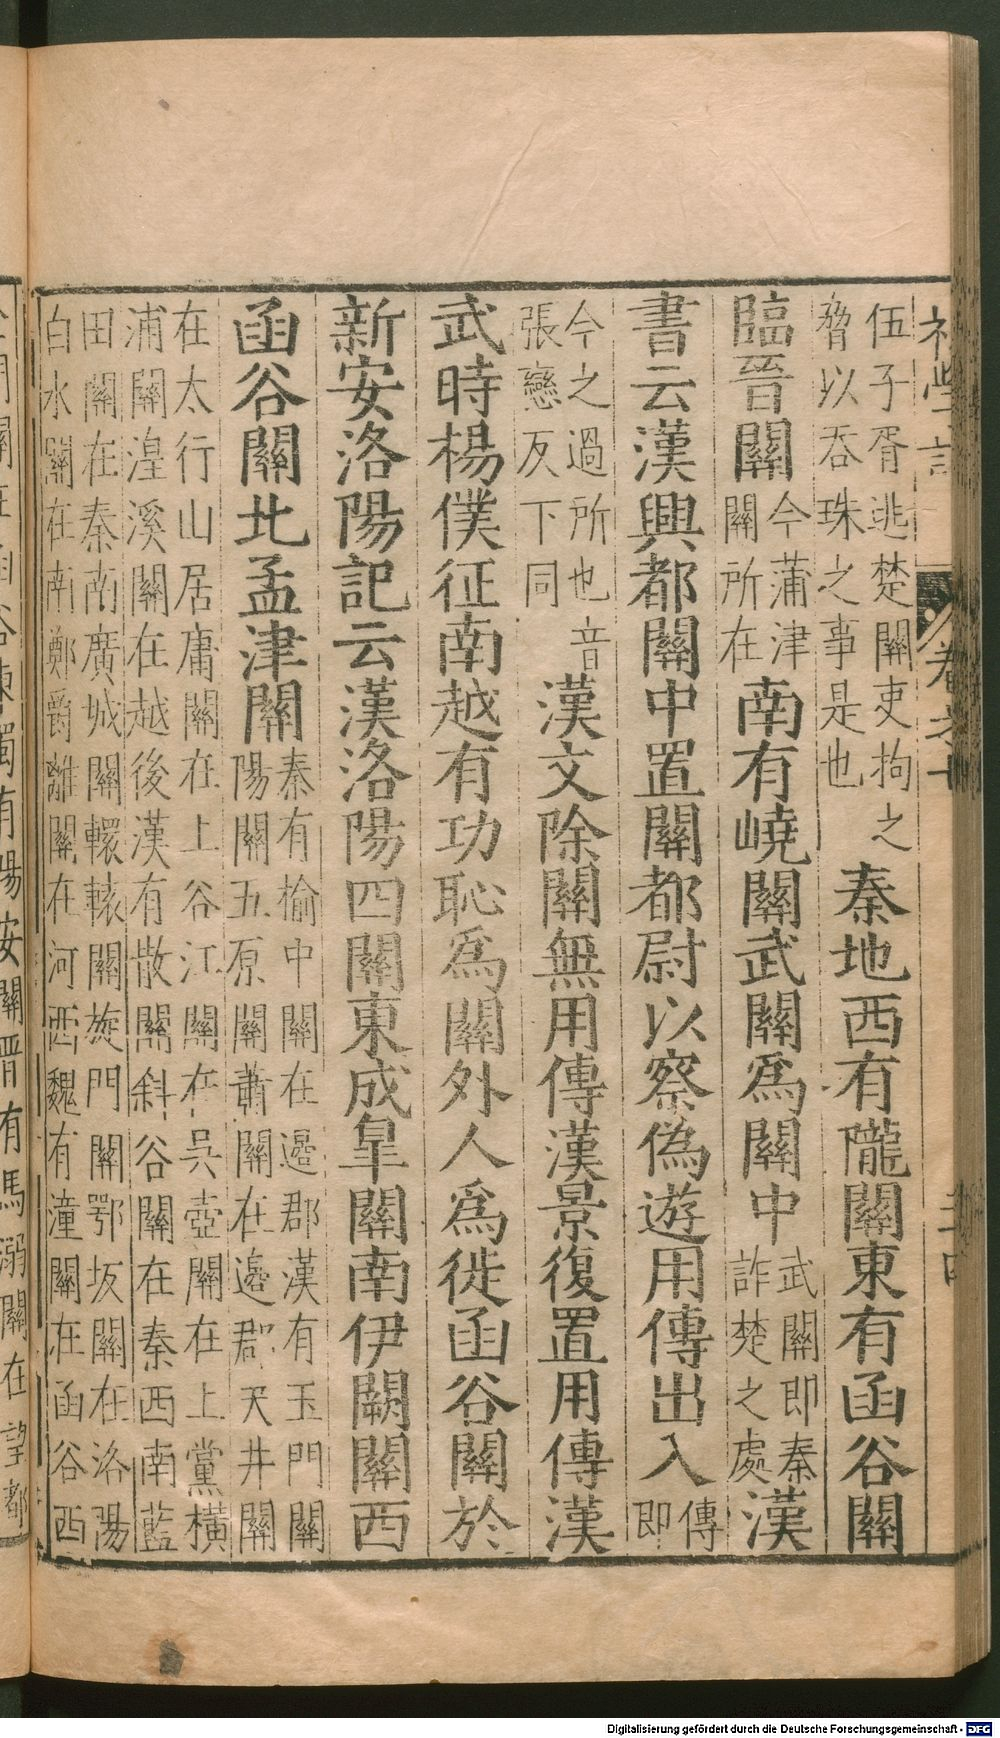 初學記 卷之七
伍子胥逃楚關吏拘之
脅以吞珠之事是也
秦地西有隴關東有函谷關
臨晉關
今蒲津
關所在
南有嶢關武關爲關中
武關即秦
詐楚之處
漢
書云漢興都關中置關都尉以察偽遊用傳出入
傳
即
今之過所也音
張戀反下同
漢文除關無用傳漢景復置用傳漢
武時楊僕征南越有功恥爲關外人爲徙函谷關於
新安洛陽記云漢洛陽四關東成皐關南伊闕關西
函谷關北孟津關
秦有榆中關在邉郡漢有玉門關
陽關五原關蕭關在邉郡天井關
在太行山居庸關在上谷江關在吳壺關在上黨橫
浦關湟溪關在越後漢有散關斜谷關在秦西南藍
田關在秦南廣城關轘轅關旋門關鄂坂關在洛陽
白水關在南鄭爵離關在河西魏有潼關在函谷西
獨有陽安關晋有馬溺關在望都
Digitalisierung gefördert durch die Deutsche Forschungsgemeinschaft - DFG